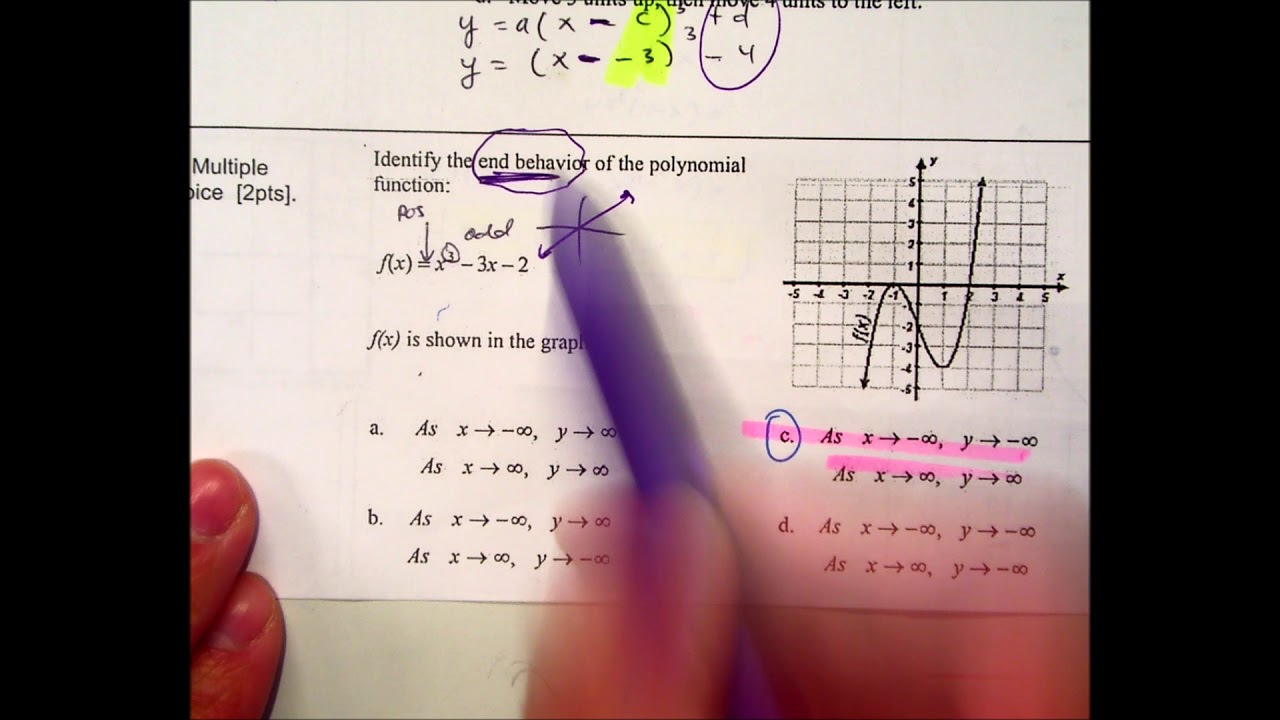 units to the left.
y = a(x - c)³ + d
y = (x - -3) - 4
Multiple
oice [2pts].
Identify the end behavior of the polynomial
function:
pos
odd
f(x) = x³ − 3x − 2
f(x) is shown in the graph
y
5
4
3
2
1
x
-5 -4 -3 -2 -1 1 2 3 4 5
-2
-3
-4
-5
f(x)
a. As x → −∞, y → ∞
As x → ∞, y → ∞
b. As x → −∞, y → ∞
As x → ∞, y → −∞
c. As x → −∞, y → −∞
As x → ∞, y → ∞
d. As x → −∞, y → −∞
As x → ∞, y → −∞